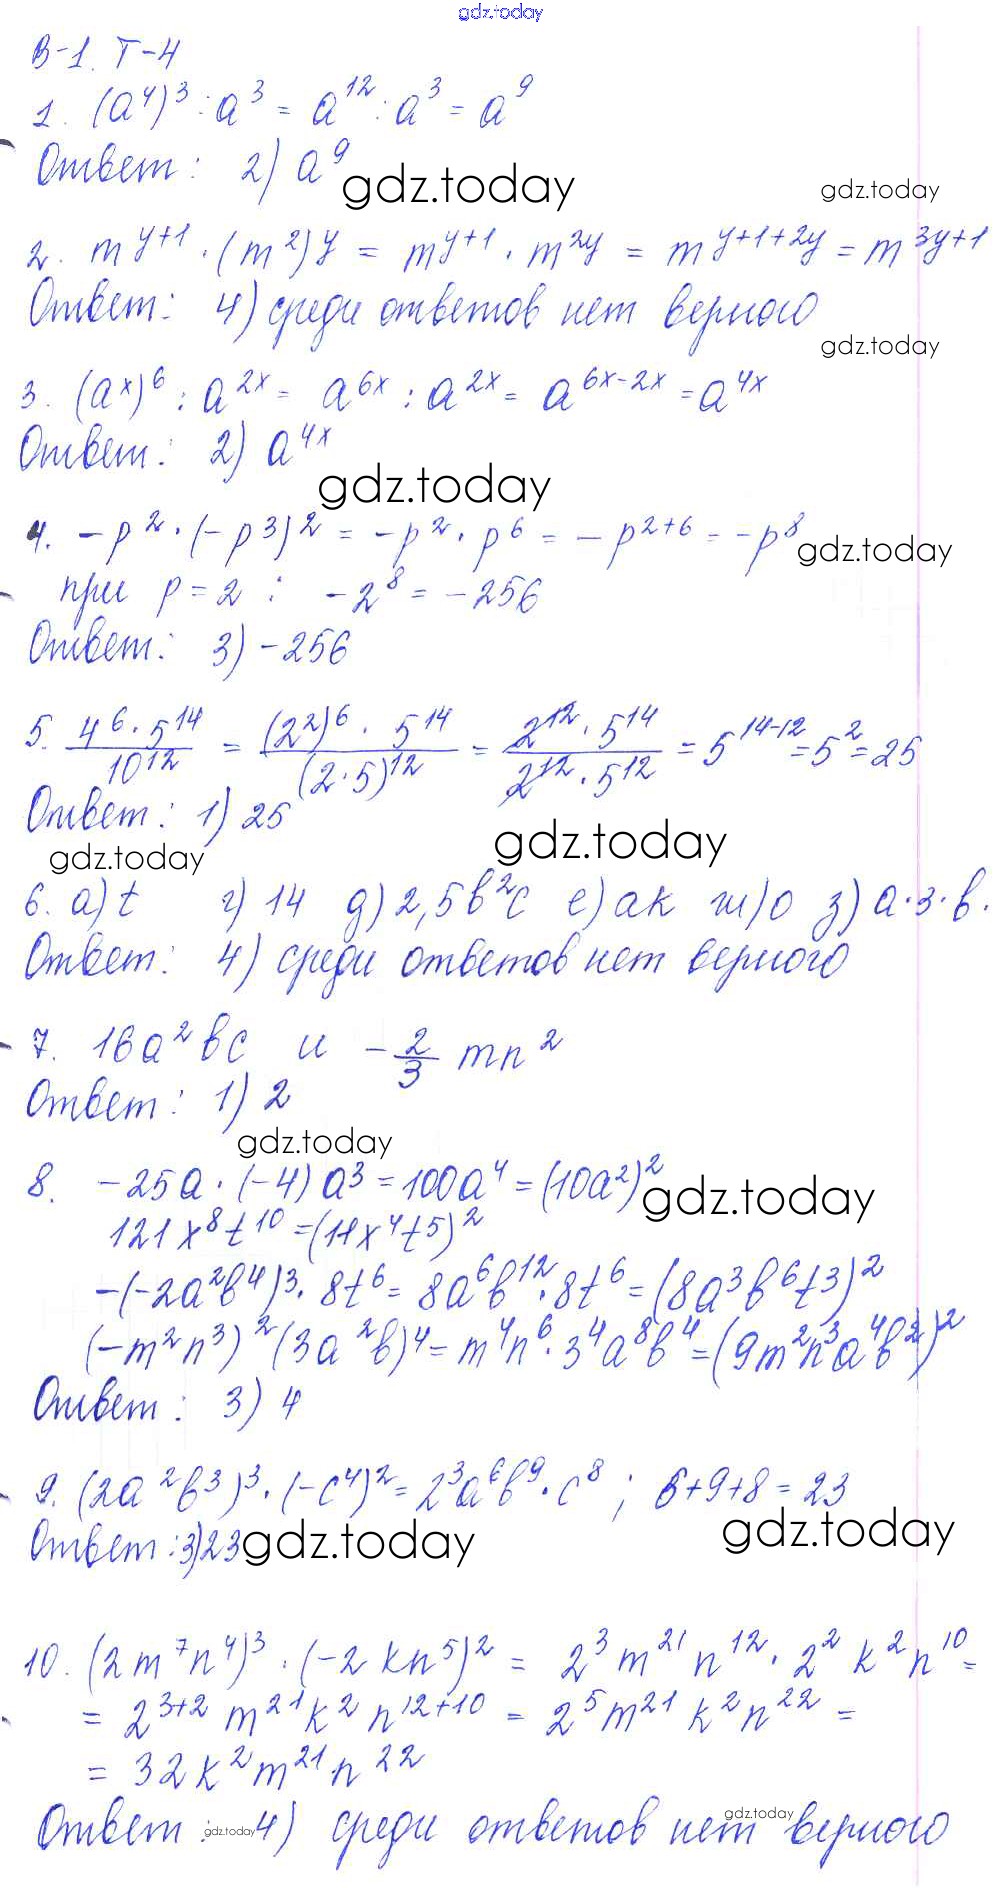 gdz.today
В-1. Т-4
1. (a⁴)³ : a³ = a¹² : a³ = a⁹
Ответ: 2) a⁹
gdz.today
gdz.today
2. m^(y+1) · (m²)^y = m^(y+1) · m^(2y) = m^(y+1+2y) = m^(3y+1)
Ответ: 4) среди ответов нет верного
gdz.today
3. (a^x)⁶ : a^(2x) = a^(6x) : a^(2x) = a^(6x-2x) = a^(4x)
Ответ: 2) a^(4x)
gdz.today
4. -p² · (-p³)² = -p² · p⁶ = -p^(2+6) = -p⁸
gdz.today
при p = 2 : -2⁸ = -256
Ответ: 3) -256
5. (4⁶ · 5¹⁴)/10¹² = ((2²)⁶ · 5¹⁴)/(2·5)¹² = (2¹² · 5¹⁴)/(2¹² · 5¹²) = 5^(14-12) = 5² = 25
Ответ: 1) 25
gdz.today
gdz.today
6. а) t г) 14 д) 2,5b²c е) ak ж) 0 з) a·3·b.
Ответ: 4) среди ответов нет верного
7. 16a²bc и -2/3 mn²
Ответ: 1) 2
gdz.today
8. -25a · (-4) a³ = 100a⁴ = (10a²)²
gdz.today
121x⁸t¹⁰ = (11x⁴t⁵)²
-(-2a²b⁴)³ · 8t⁶ = 8a⁶b¹² · 8t⁶ = (8a³b⁶t³)²
(-m²n³)² (3a²b)⁴ = m⁴n⁶ · 3⁴a⁸b⁴ = (9m²n³a⁴b²)²
Ответ: 3) 4
9. (2a²b³)³ · (-c⁴)² = 2³a⁶b⁹ · c⁸ ; 6+9+8 = 23
Ответ: 3) 23
gdz.today
gdz.today
10. (2m⁷n⁴)³ · (-2kn⁵)² = 2³m²¹n¹² · 2²k²n¹⁰ =
= 2^(3+2) m²¹k²n^(12+10) = 2⁵m²¹k²n²² =
= 32k²m²¹n²²
gdz.today
Ответ: 4) среди ответов нет верного
gdz.today